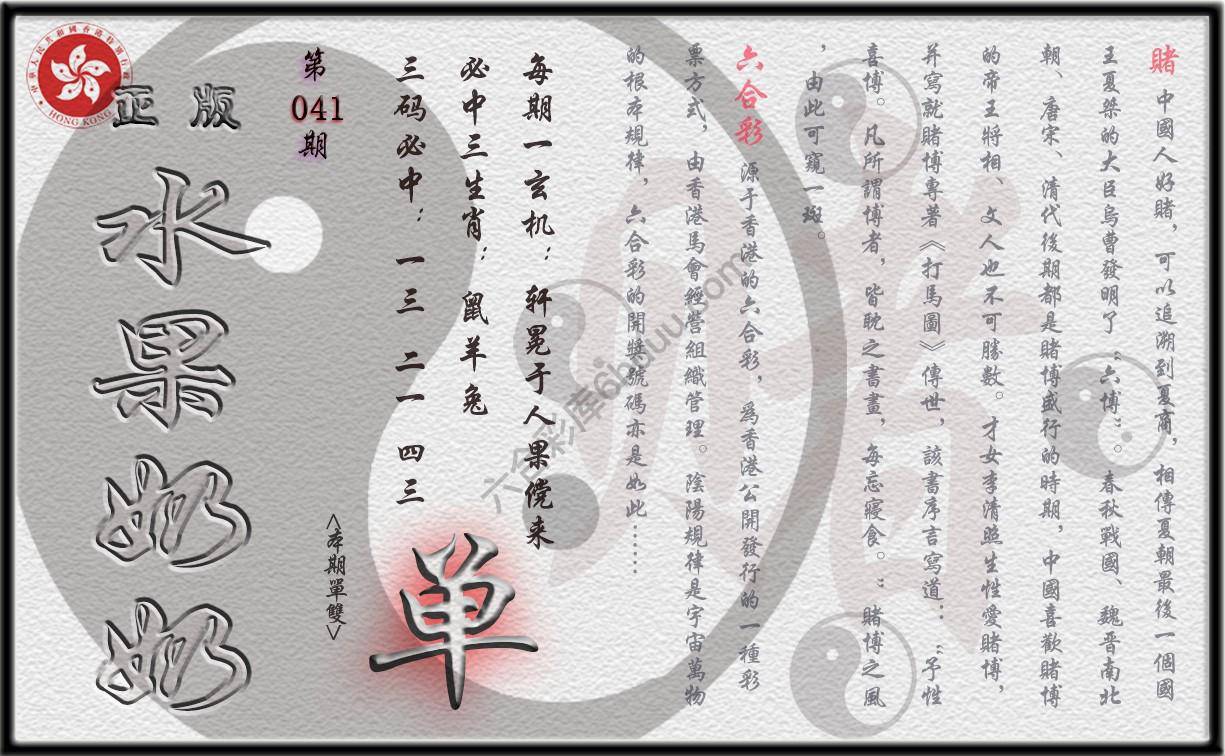 賭 中國人好賭，可以追溯到夏商，相傳夏朝最後一個國
王夏桀的大臣烏曹發明了“六博”。春秋戰國、魏晋南北
朝、唐宋、清代後期都是賭博盛行的時期，中國喜歡賭博
的帝王將相、文人也不可勝數。才女李清照生性愛賭博，
并寫就賭博專著《打馬圖》傳世，該書序言寫道：“予性
喜博。凡所謂博者，皆耽之書畫，每忘寢食。”賭博之風
，由此可窺一斑。
六合彩 源于香港的六合彩，爲香港公開發行的一種彩
票方式，由香港馬會經營組織管理。陰陽規律是宇宙萬物
的根本規律，六合彩的開獎號碼亦是如此……
每期一玄机：轩冕于人果傥来
必中三生肖：鼠羊兔
三码必中：一三 二一 四三
<本期單雙>
单
第
041
期
正版
水果奶奶
中華人民共和國香港特別行政區
HONG KONG
六合彩库6hduu.com